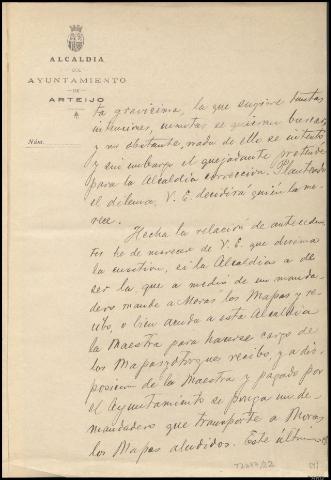 ALCALDIA
DEL
AYUNTAMIENTO
DE
ARTEIJO
Núm.
ta gravisima, la que sugiere tantas
intenciones, cuantas se quieran buscar,
y no obstante, nada de ello se intentó
y sin embargo el quejadante pretende
para la Alcaldia corrección. Planteado
el dilema, V. E. decidirá quién la me-
rece.
Hecha la relación de anteceden-
tes he de merecer de V. E. que dirima
la cuestión, si la Alcaldia a de
ser la que a medio de un manda-
dero mande a Morás los Mapas y re-
cibo, o bien acuda a esta Alcaldia
la Maestra para hacerse cargo de
los Mapas y otorgue recibo, y a dis-
posición de la Maestra y pagado por
el Ayuntamiento se ponga un de-
mandadero que transporte a Morás
los Mapas aludidos. Este último es